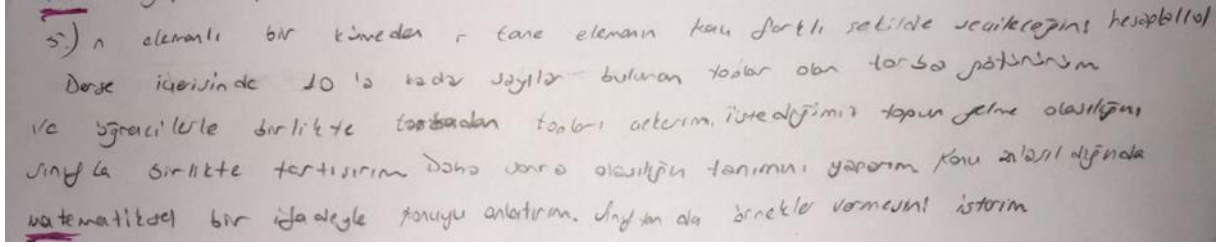 5.) n elemanlı bir kümeden r tane elemanın kaç farklı şekilde seçileceğini hesaplall(o)
Derse içerisinde 10'a kadar sayılar bulunan toplar olan torba götürürüm
ve öğrencilerle birlikte torbadan topları çekerim. istediğimiz topun gelme olasılığını
sınıfla birlikte tartışırım Daha sonra olasılığın tanımını yaparım Konu anlaşıldığında
matematiksel bir ifadeyle konuyu anlatırım. Sınıftan da örnekler vermesini isterim